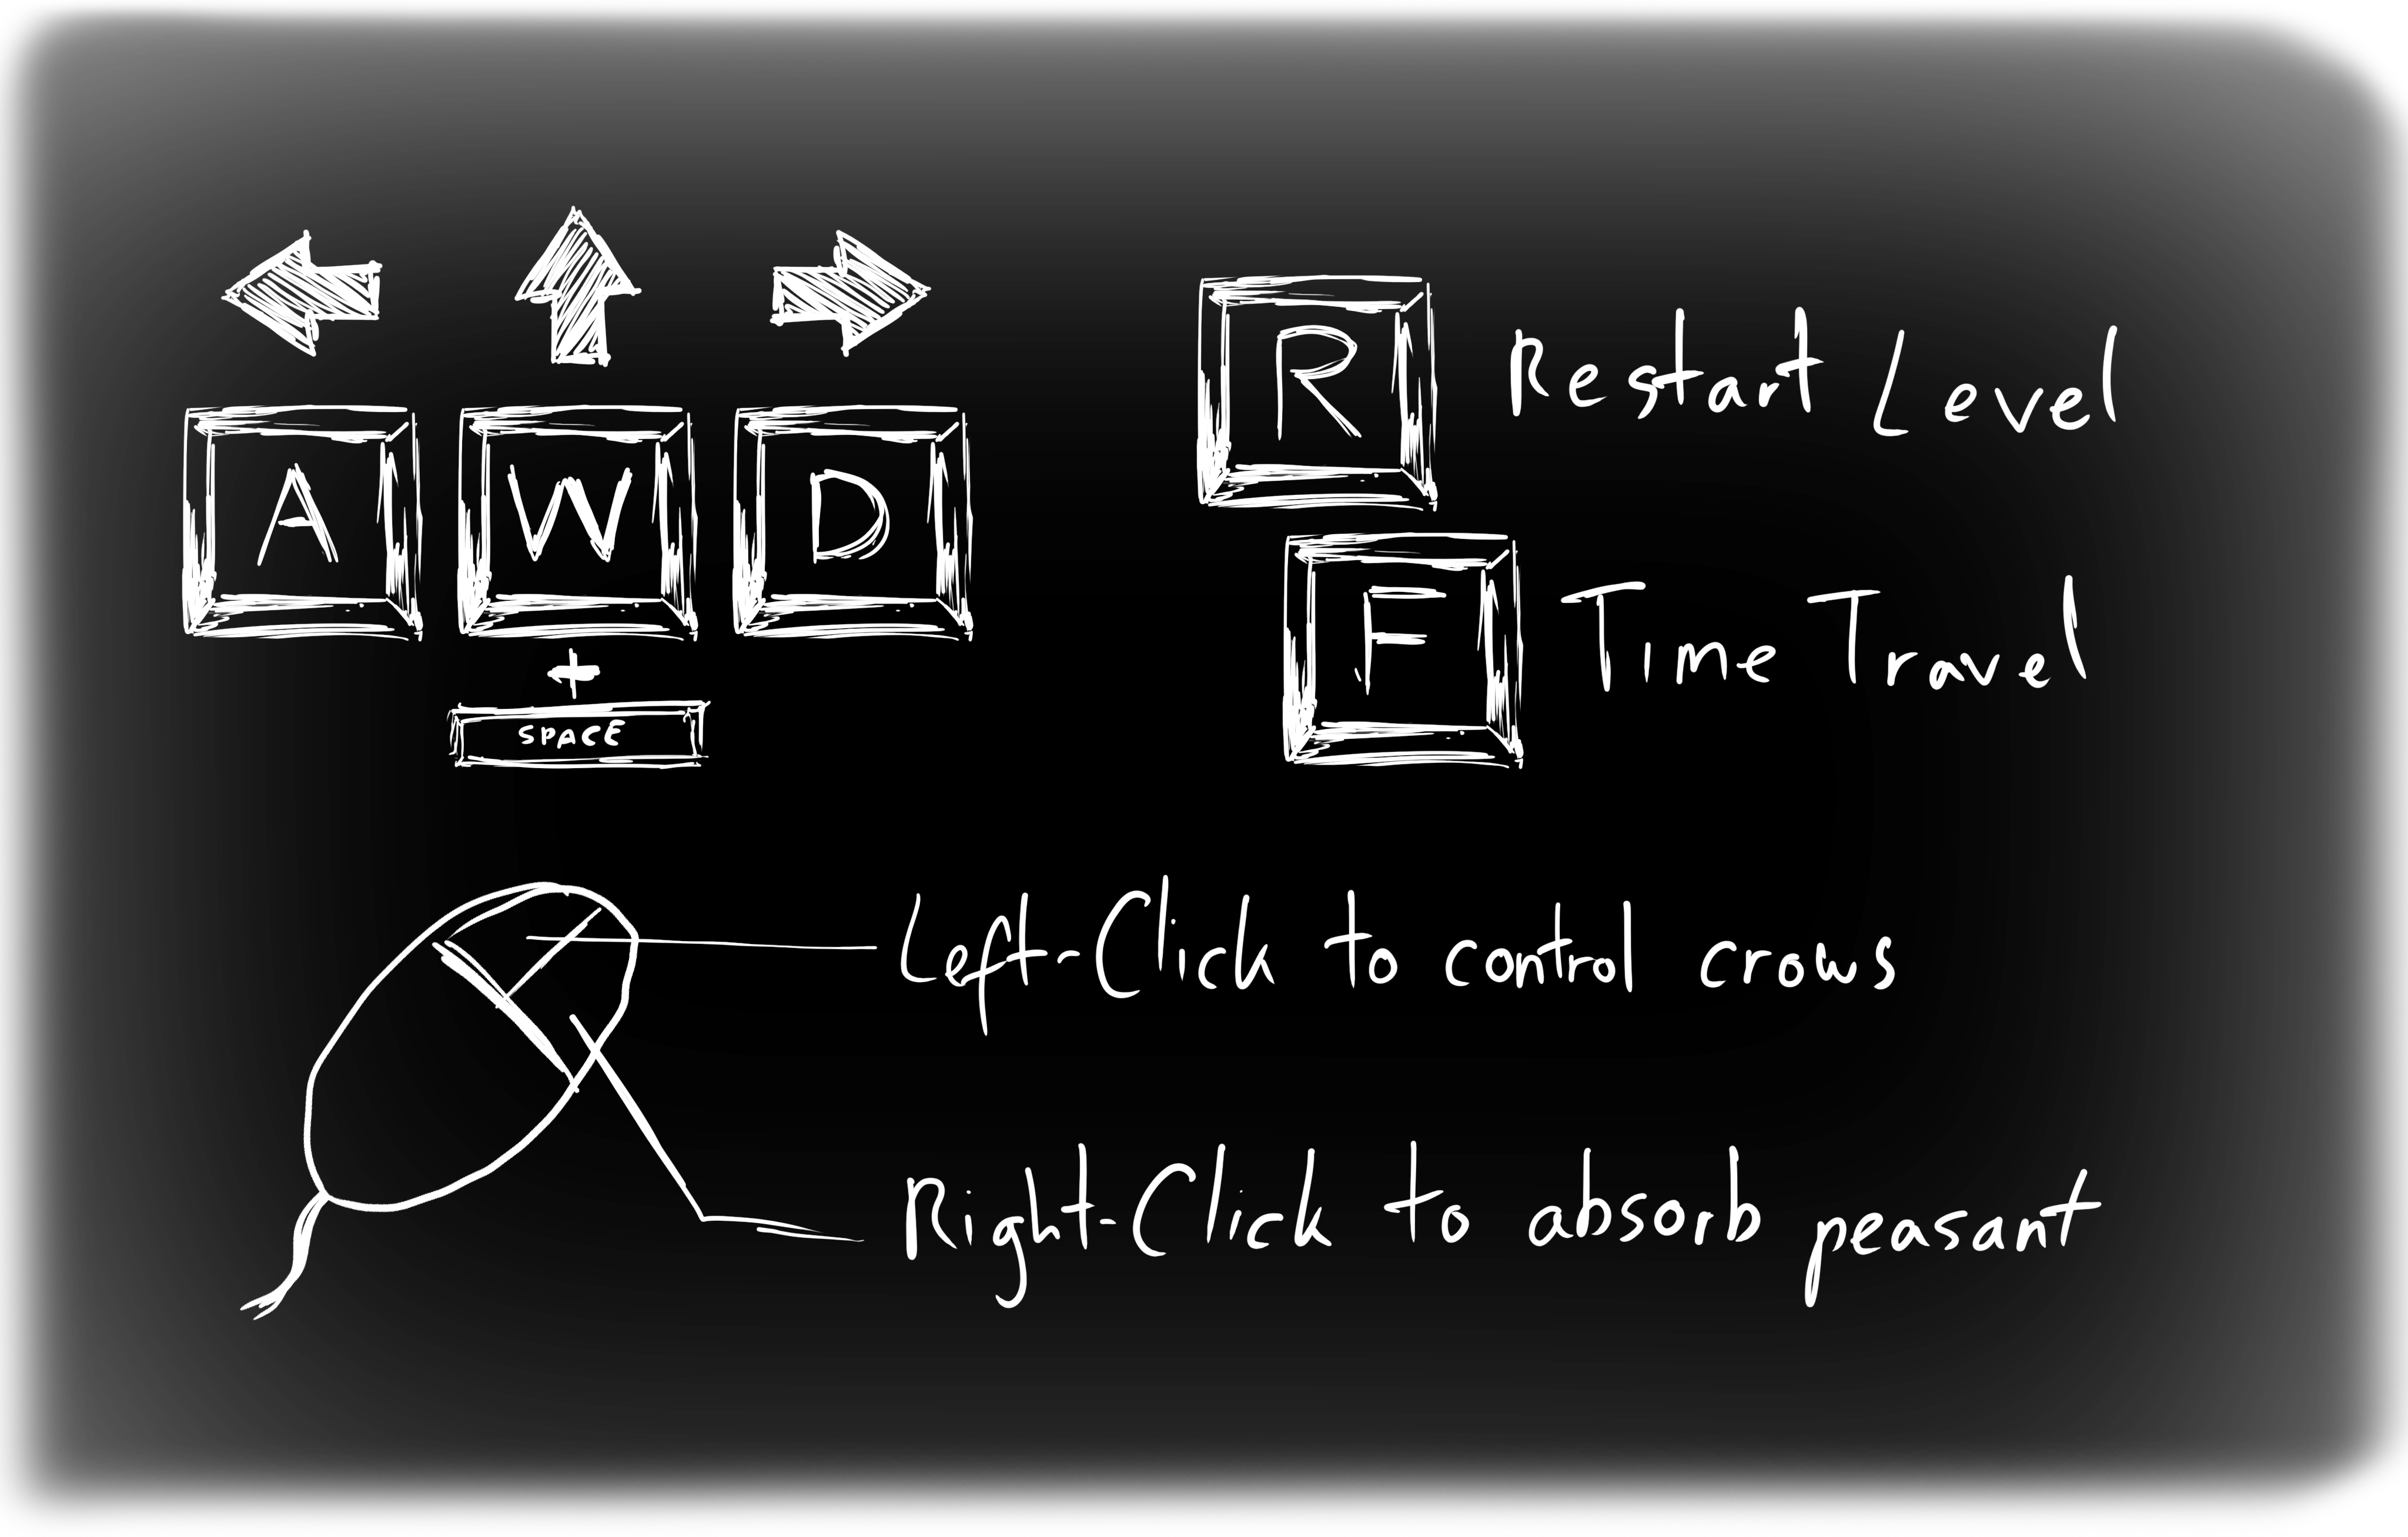 A W D
+
SPACE
R Restart Level
F Time Travel
Left-Click to control crows
Right-Click to absorb peasant